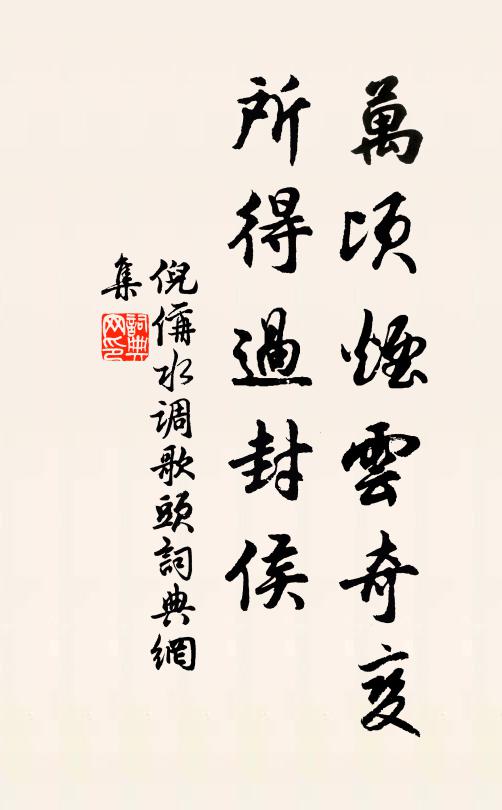 萬頃煙雲奇変
所得過封侯
倪偁水调歌頭詞典網
集
詞典網印